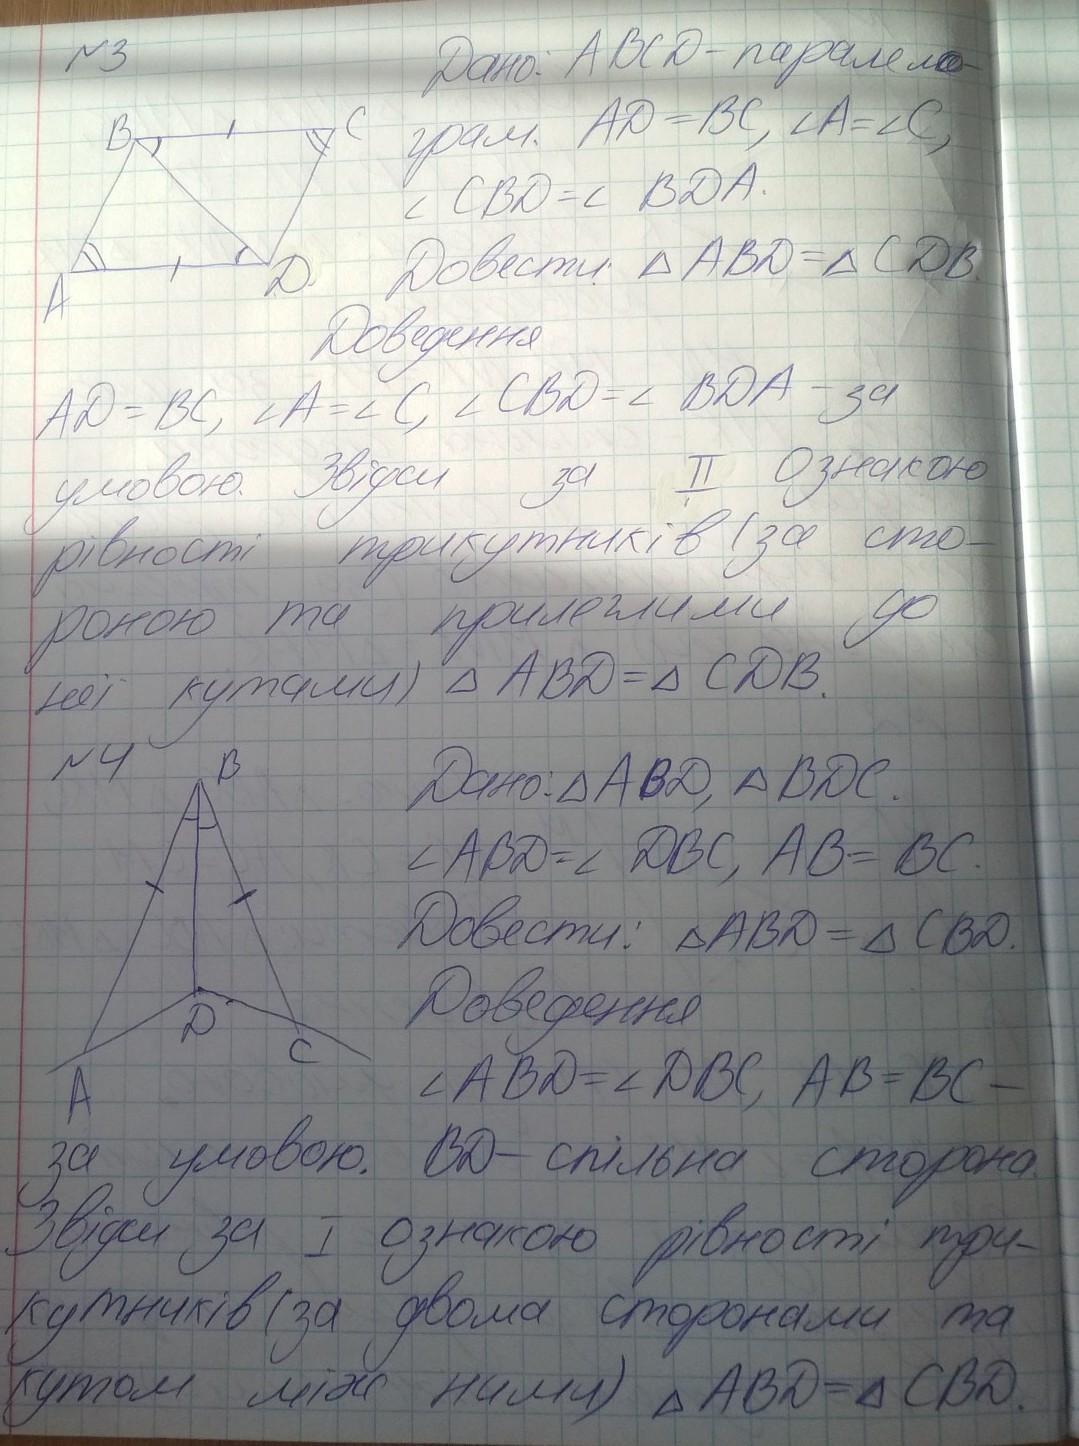 №3
Дано: ABCD - паралело-
B C
грам. AD = BC, ∠A = ∠C,
∠CBD = ∠BDA.
A D
Довести: △ABD = △CDB.
Доведення
AD = BC, ∠A = ∠C, ∠CBD = ∠BDA - за
умовою. Звідси за II ознакою
рівності трикутників (за сто-
роною та прилеглими до
неї кутами) △ABD = △CDB.
№4
B
Дано: △ABD, △BDC.
∠ABD = ∠DBC, AB = BC.
Довести: △ABD = △CBD.
Доведення
D
C
A
∠ABD = ∠DBC, AB = BC -
за умовою. BD - спільна сторона.
Звідси за I ознакою рівності три-
кутників (за двома сторонами та
кутом між ними) △ABD = △CBD.